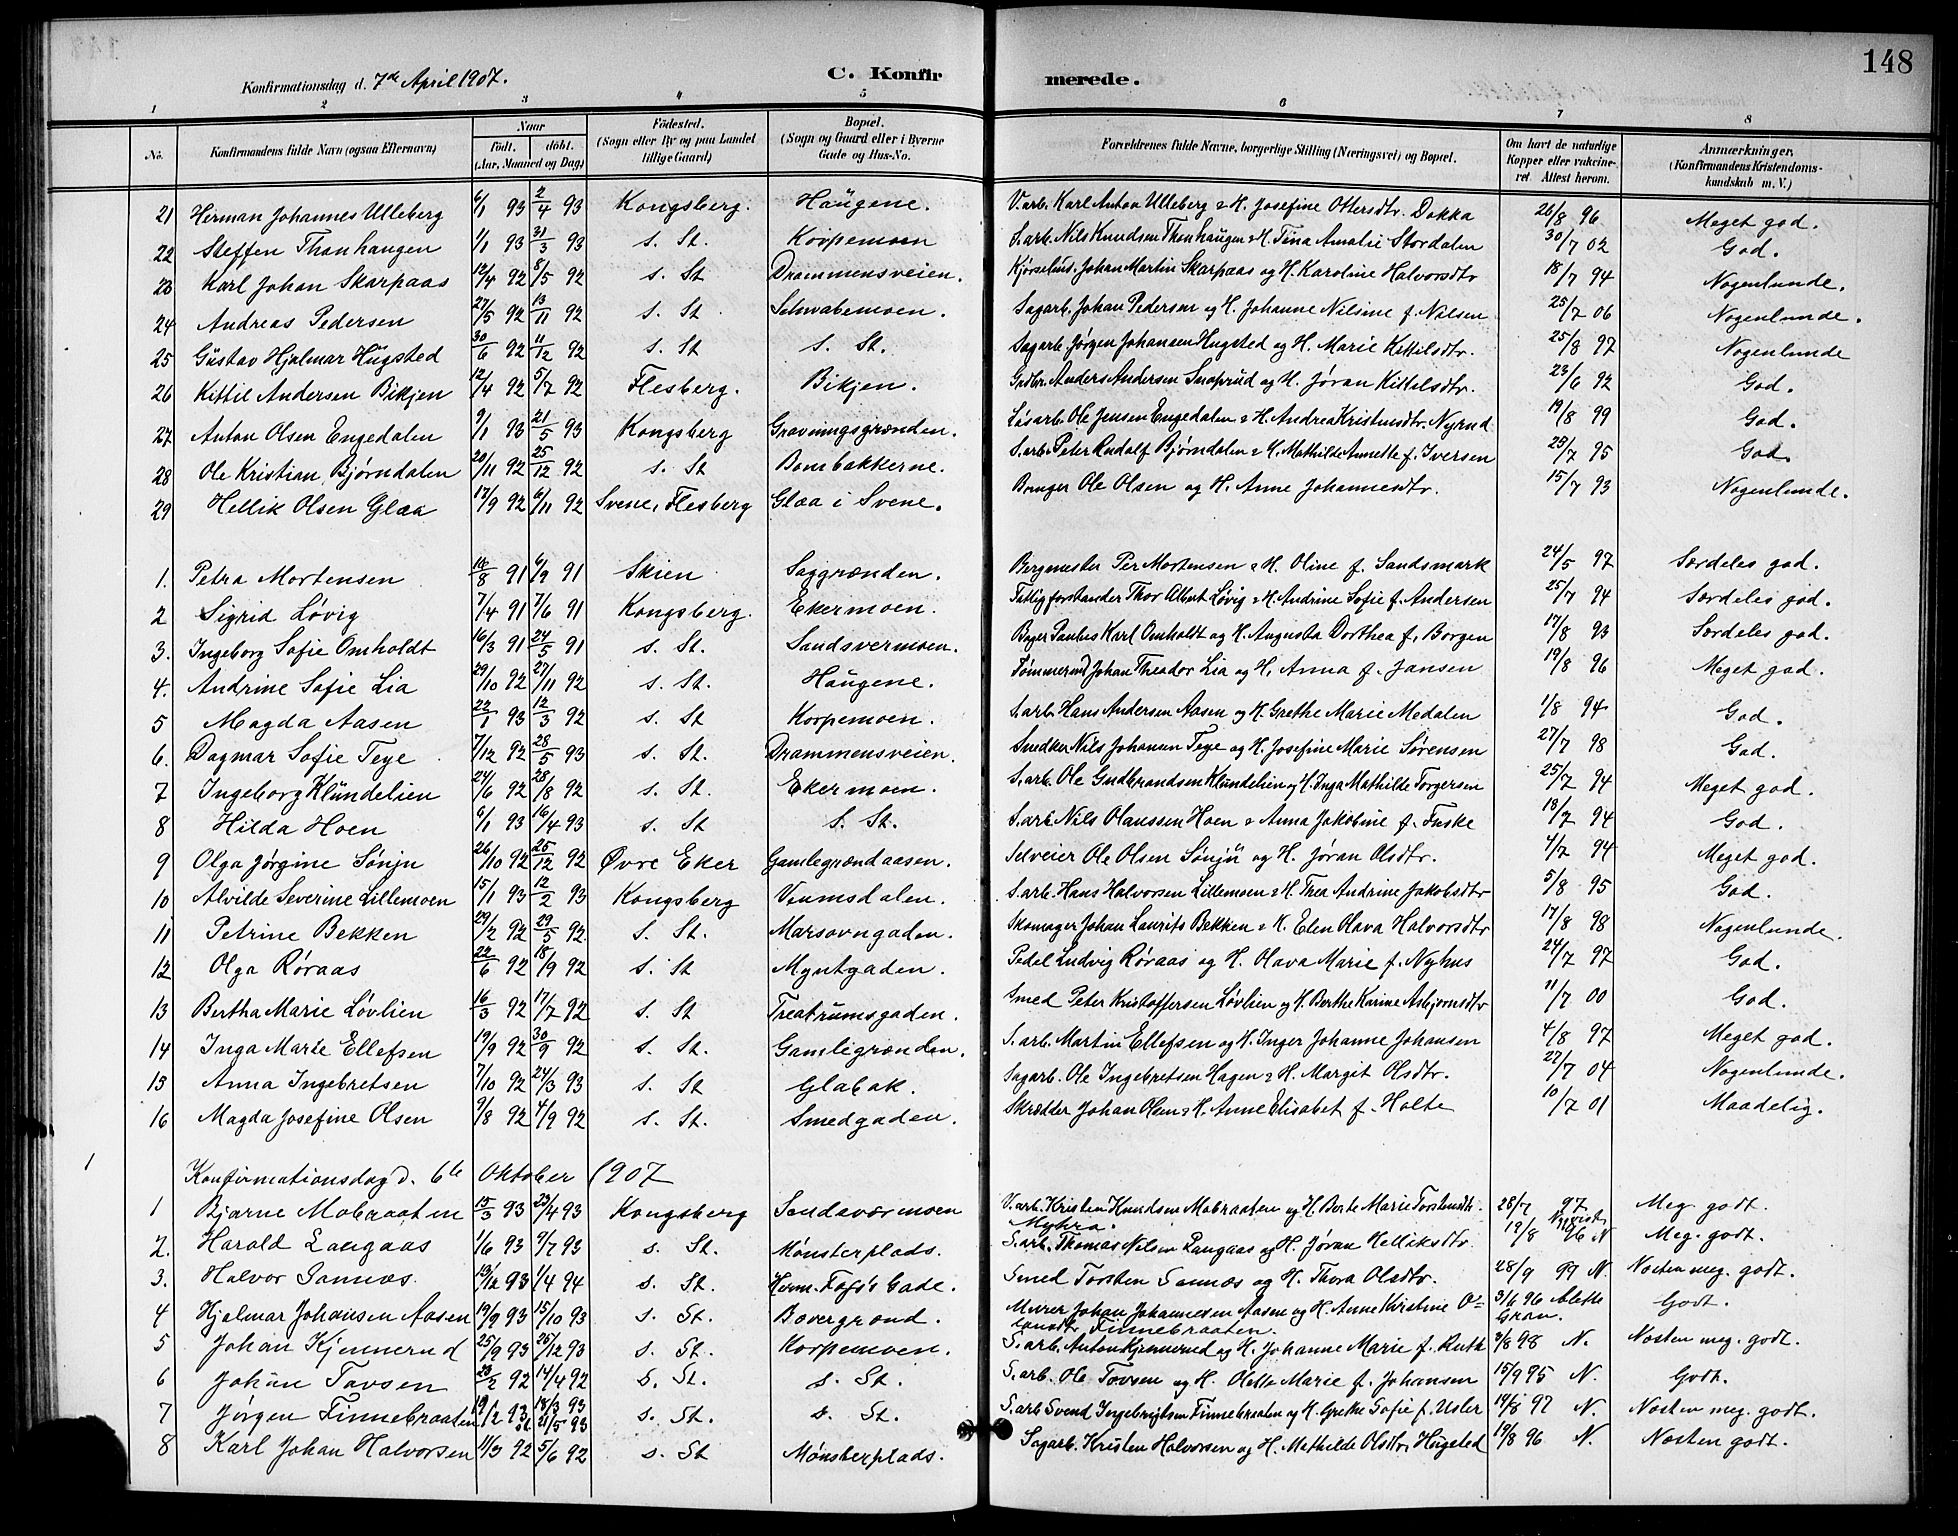 148
Konfirmationsdag d. 7de April 1907. C. Konfirmerede.
1 2 3 4 5 6 7 8
No. Konfirmandens fulde Navn (ogsaa Efternavn) Naar født. døbt. (Aar, Maaned og Dag) Fødested. (Sogn eller By og paa Landet tillige Gaard) Bopæl. (Sogn og Gaard eller i Byerne Gade og Hus-No. Forældrenes fulde Navne, borgerlige Stilling (Næringsvei) og Bopæl. Om havt de naturlige Kopper eller vakcineret Attest herom. Anmærkninger, (Konfirmandens Kristendomskundskab m. V.)
21 Herman Johannes Ulleberg 6/1 93 2/4 93 Kongsberg. Haugene. V.arb. Karl Anton Ulleberg & H. Josefine Ottersdtr. Dokka 26/8 96 Meget god.
22 Steffen Thonhaugen 1/1 93 31/3 93 s. St. Korpemoen S.arb. Nils Knudsen Thonhaugen & H. Tina Amalie Stordalen 30/7 02 God.
23 Karl Johan Skarpaas 12/4 92 8/5 92 s. St Drammensveien. Johan Martin Skarpaas og H. Karoline Halvorsdtr 18/7 94 Nogenlunde.
24 Andreas Pedersen 27/5 92 13/11 92 s. St. Schwabemoen. Sagarb. Johan Pedersen og H. Johanne Nilsine f. Nilsen 25/7 06 Nogenlunde.
25 Gustav Hjalmar Hugsted 30/6 92 11/12 92 s. St s. St. Sagarb. Jørgen Johansen Hugsted og H. Marie Kittilsdtr. 25/8 97 Nogenlunde
26 Kittil Andersen Bikjen 12/4 92 5/7 92 Flesberg. Bikjen. Gadbr. Anders Andersen Snaprud og H. Jøran Kittelsdtr. 23/6 92 God.
27 Anton Olsen Engedalen 9/1 93 21/5 93 Kongsberg Gravningsgrænden. Løsarb. Ole Jensen Engedalen & H. Andrea Kristensdtr. Nyrud 19/8 99 God.
28 Ole Kristian Bjørndalen 20/11 92 25/12 92 s. St Bombakkerne. S.arb. Peter Rudolf Bjørndalen & H. Mathilde Annette f. Iversen 25/7 95 God.
29 Hellik Olsen Glaa 17/9 92 6/11 92 Svene, Flesberg Glaa i Svene. Bruger Ole Olsen og H. Anne Johannesdtr. 15/7 93 Nogenlunde.
1. Petra Mortensen 18/8 91 6/9 91 Skien Saggrænden. Bergmester Per Mortensen & H. Oline f. Sandsmark 24/5 97 Særdeles god.
2 Sigrid Løvig 7/4 91 7/6 91 Kongsberg. Ekermoen. Fattigforstander Thor Albert Løvig & H. Andrine Sofie f. Andersen 25/7 94 Særdeles god.
3. Ingeborg Sofie Omholdt 16/3 91 24/5 91 s. St. Sandsværmoen. Bager Paulus Karl Omholdt og H. Augusta Dorthea f. Borgen 17/8 93 Særdeles god.
4. Andrine Sofie Lia 29/10 92 27/11 92 s. St. Haugene. Tømmermd Johan Theodor Lia og H. Anna f. Jansen 19/8 96 Meget god.
5 Magda Aasen 22/1 93 12/3 92 s. St Korpemoen. S.arb. Hans Andersen Aasen og H. Grethe Marie Medalen 1/8 94 God.
6. Dagmar Sofie Teye 7/12 92 28/5 93 s. St. Drammensveien. Snedker Nils Johansen Teye og H. Josefine Marie Sørensen 27/7 98 God.
7 Ingeborg Klundelien 24/6 92 28/8 92 s. St. Ekermoen. S.arb. Ole Gudbrandsen Klundelien og H. Inga Mathilde Torgersen 25/7 94 Meget god.
8 Hilda Hoen 6/1 93 16/4 93 s. St S. St. S.arb. Nils Olaussen Hoen & Anna Jakobine f. Fuske 18/7 94 God.
9 Olga Jørgine Sønju 26/10 92 25/12 92 Øvre Eker Gamlegrændaasen. Selveier Ole Olsen Sønju og H. Jøran Olsdtr. 4/7 94 Meget god.
10 Alvilde Severine Lillemoen 15/1 93 12/2 93 Kongsberg Veumsdalen. S.arb. Hans Halvorsen Lillemoen & H. Thea Andrine Jakobsdtr 5/8 95 God.
11 Petrine Bekken 29/2 92 29/5 92 S. St. Marsovngaden. Skomager Johan Laurits Bekken & H. Elen Olava Halvorsdtr 17/8 98 Nogenlunde.
12 Olga Røraas 22/6 92 18/9 92 s. St Myntgaden. Pedel Ludvig Røraas og H. Olava Marie f. Nyhus 24/7 97 God.
13 Bertha Marie Løvlien 16/3 92 17/7 92 s. St Treatrumsgaden. Smed Peter Kristoffersen Løvlien og H. Berthe Karine Asbjørnsdtr 11/7 00 God.
14 Inga Marie Ellefsen 19/9 92 30/9 92 s. St. Gamlegrænden. S.arb. Martin Ellefsen og H. Inger Johanne Johansen 4/8 97 Meget god.
15 Anna Ingebretsen 7/10 92 24/3 93 s. St Glabak. Sagarb. Ole Ingebretsen Hagen & H. Margit Olsdtr. 22/7 04 Nogenlunde.
16 Magda Josefine Olsen 9/8 92 4/9 92 s. St. Smedgaden. Skrædder Johan Olsen & H. Anne Elisabet f. Holte 10/7 01 Maadelig.
1
Konfirmationsdag d. 6te Oktober 1907
1 Bjarne Mobraaten 15/3 93 23/4 93 Kongsberg Sandsværmoen V.arb. Kristen Knudsen Mobraaten og H. Berte Marie Torstensdtr. 28/7 97 Meg. godt.
Myhra.
2. Harald Langaas 1/6 93 9/7 93 s. St. Mønsterplads. S.arb. Thomas Nilsen Langaas og H. Jøran Helliksdtr 12/8 96 N Meg. godt.
3. Halvor Sannæs. 13/12 93 1/4 94 s. St. Herm. Foss's Gade. Smed Torsten Sannæs og H. Thora Olsdtr. 28/9 99 N. Næsten meg. godt.
4 Hjalmar Johansen Aasen 19/9 93 15/10 93 s. St. Bovergrænd. Murer Johan Johannesen Aasen og H. Anne Kristine O= 3/6 96 Alette Godt.
Finnebraaten. Gran.
5 Johan Kjennerud 25/9 93 26/12 93 s. St. Korpemoen. S.arb. Anton Kjennerud og H. Johanne Marie f. Ruth 3/8 98 N. Næsten meg. godt.
6 Johan Tovsen 23/2 92 14/4 92 s. St. s. St. S.arb. Ole Tovsen og H. Olette Marie f. Johansen 15/9 95 N. Godt.
7 Jørgen Finnebraaten 19/2 93 18/3 93 st 21/5 93 s. St. s. St. S.arb Svend Ingebrigtsen Finnebraaten og H. Grethe Sofie f. Usler 14/8 97 N. Næsten meg. godt.
8 Karl Johan Halvorsen 11/3 92 5/6 92 s. St Mønsterplads. Sagarb. Kristen Halvorsen og H. Mathilde Olsdtr. Hugsted 19/8 96 N. Næsten godt.